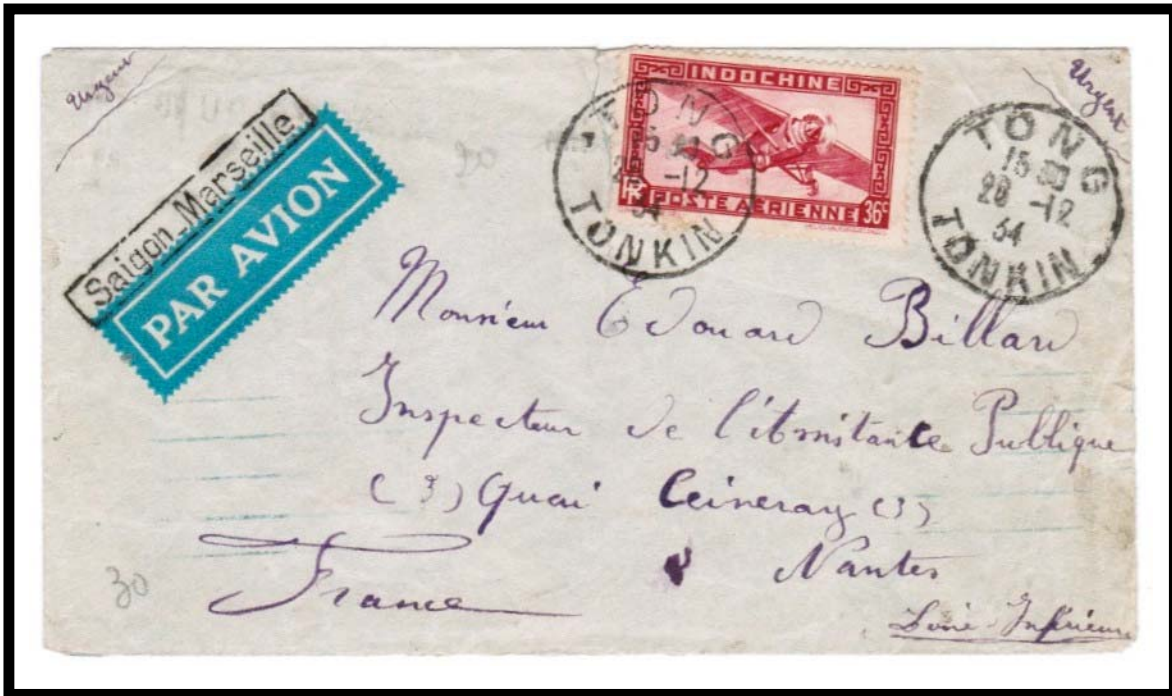 Urgent
Urgent
Saigon_Marseille
PAR AVION
INDOCHINE
RF
POSTE AERIENNE 36c
TONG
15 30
-12
34
TONKIN
TONG
15 30
28 -12
34
TONKIN
Monsieur Edouard Billard
Inspecteur de l'Assistance Publique
(3) Quai Ceineray (3)
Nantes
France
Loire-Inférieure
30